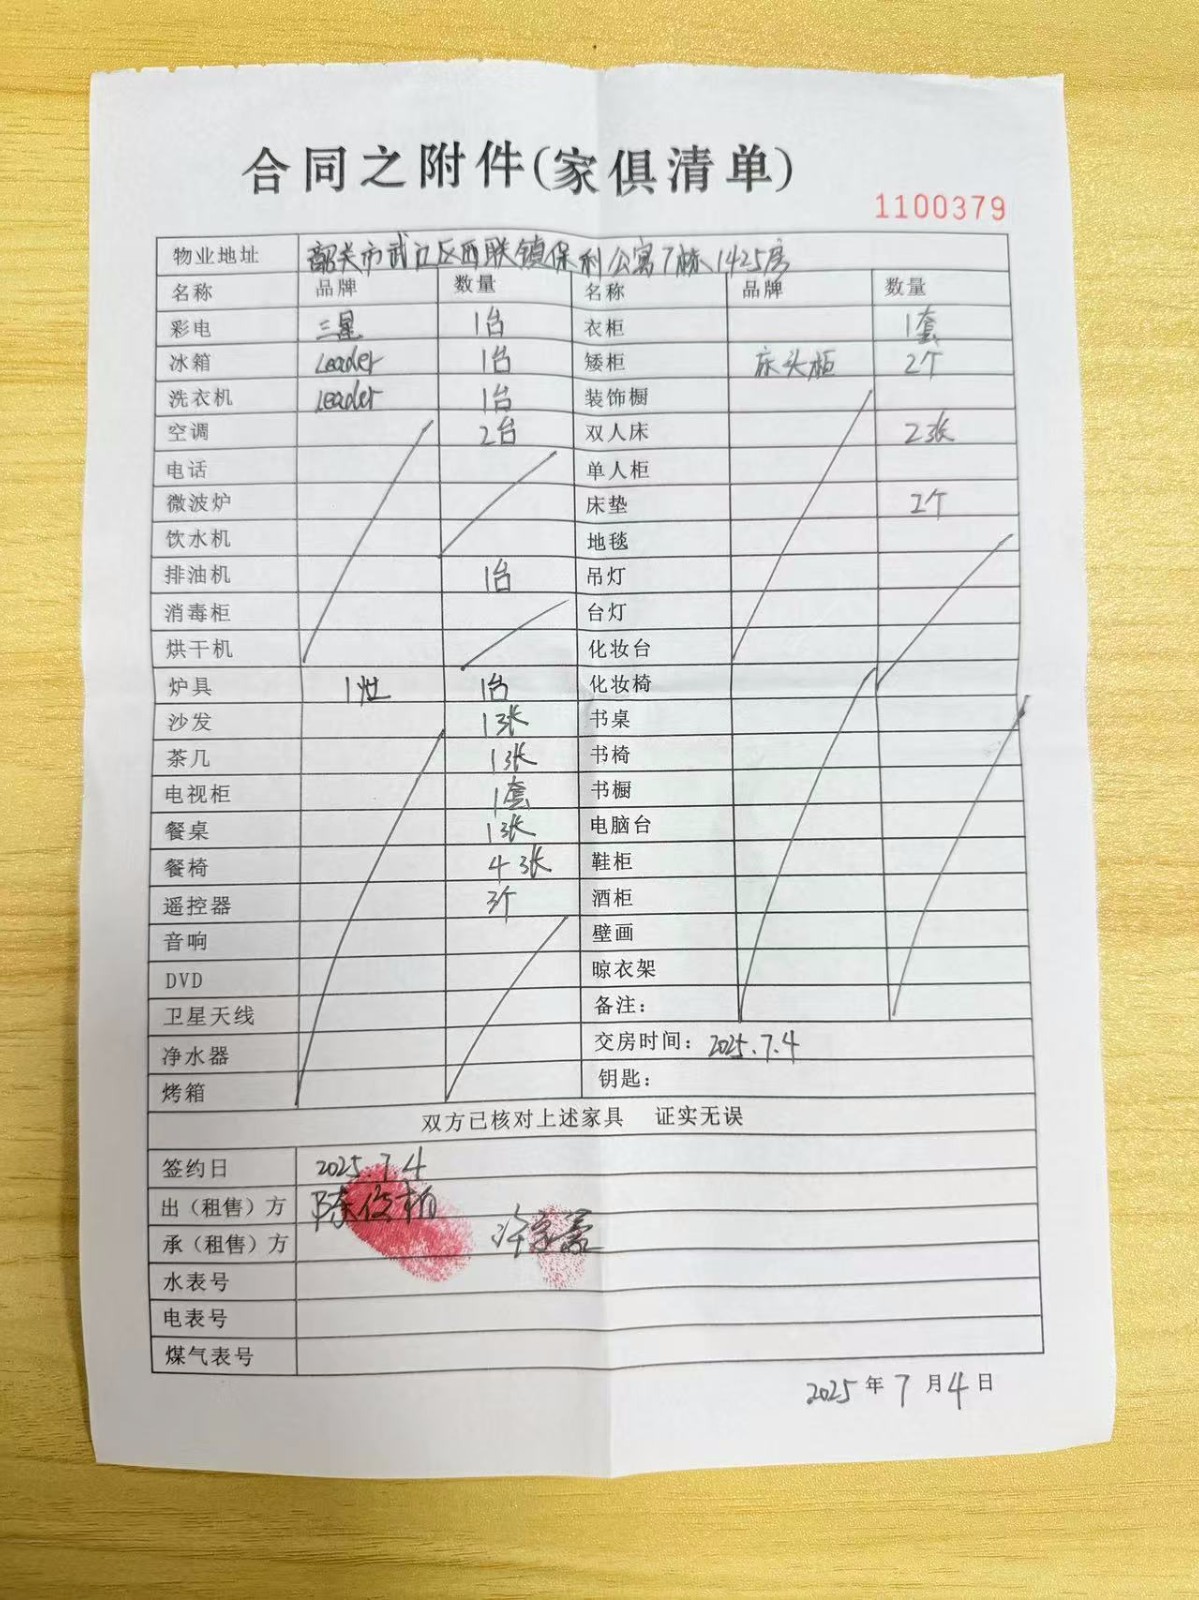 合同之附件(家俱清单)
1100379
物业地址 韶关市武江区西联镇保利公寓7栋1425房
名称 品牌 数量 名称 品牌 数量
彩电 三星 1台 衣柜 1套
冰箱 Leader 1台 矮柜 床头柜 2个
洗衣机 Leader 1台 装饰橱
空调 2台 双人床 2张
电话 单人柜
微波炉 床垫 2个
饮水机 地毯
排油机 1台 吊灯
消毒柜 台灯
烘干机 化妆台
炉具 1灶 1台 化妆椅
沙发 1张 书桌
茶几 1张 书椅
电视柜 1套 书橱
餐桌 1张 电脑台
餐椅 4张 鞋柜
遥控器 3个 酒柜
音响 壁画
DVD 晾衣架
卫星天线 备注：
净水器 交房时间：2025.7.4
烤箱 钥匙：
双方已核对上述家具 证实无误
签约日 2025.7.4
出（租售）方 陈俊柏
承（租售）方
水表号
电表号
煤气表号
2025年7月4日